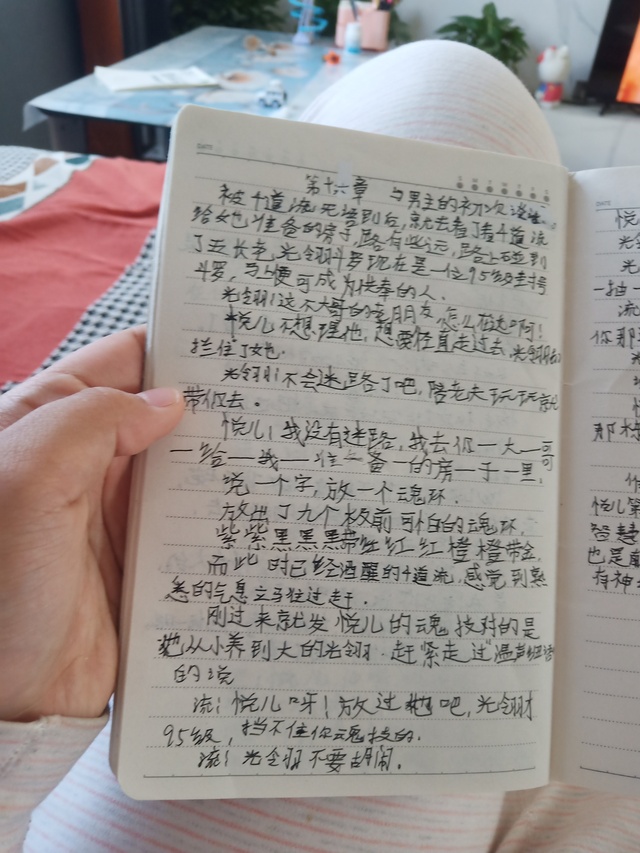 DATE
第十六章 与男主的初次
被千道流死语别后,就去看了看千道流
给她准备的房子,路有些远,路上碰到
了五长老,光翎斗罗现在是一位95级封号
斗罗,马上便可成为供奉的人。
光翎:这不大哥的 朋友怎么在这啊!
悦儿不想理他,想要径直走过去,光翎
拦住了她。
光翎:不会迷路了吧,陪老夫玩玩就
带你去。
悦儿:我没有迷路,我去你一大一哥
一给一我一准一备一的房一子一里,
说一个字,放一个魂环.
放出了九个极前可怕的魂环,
紫紫黑黑黑带红红红橙橙带金,
而此时已经酒醒的千道流,感觉到熟
悉的气息立马往过赶.
刚过来就发悦儿的魂技对的是
他从小养到大的光翎.赶紧走过 温声细语
的说
流:悦儿呀!放过他吧,光翎才
95级,挡不住你魂技的.
流:光翎不要胡闹.
DATE
悦
光
光
一抽一
流
你那
那
作
悦儿第
智慧
也是
有神